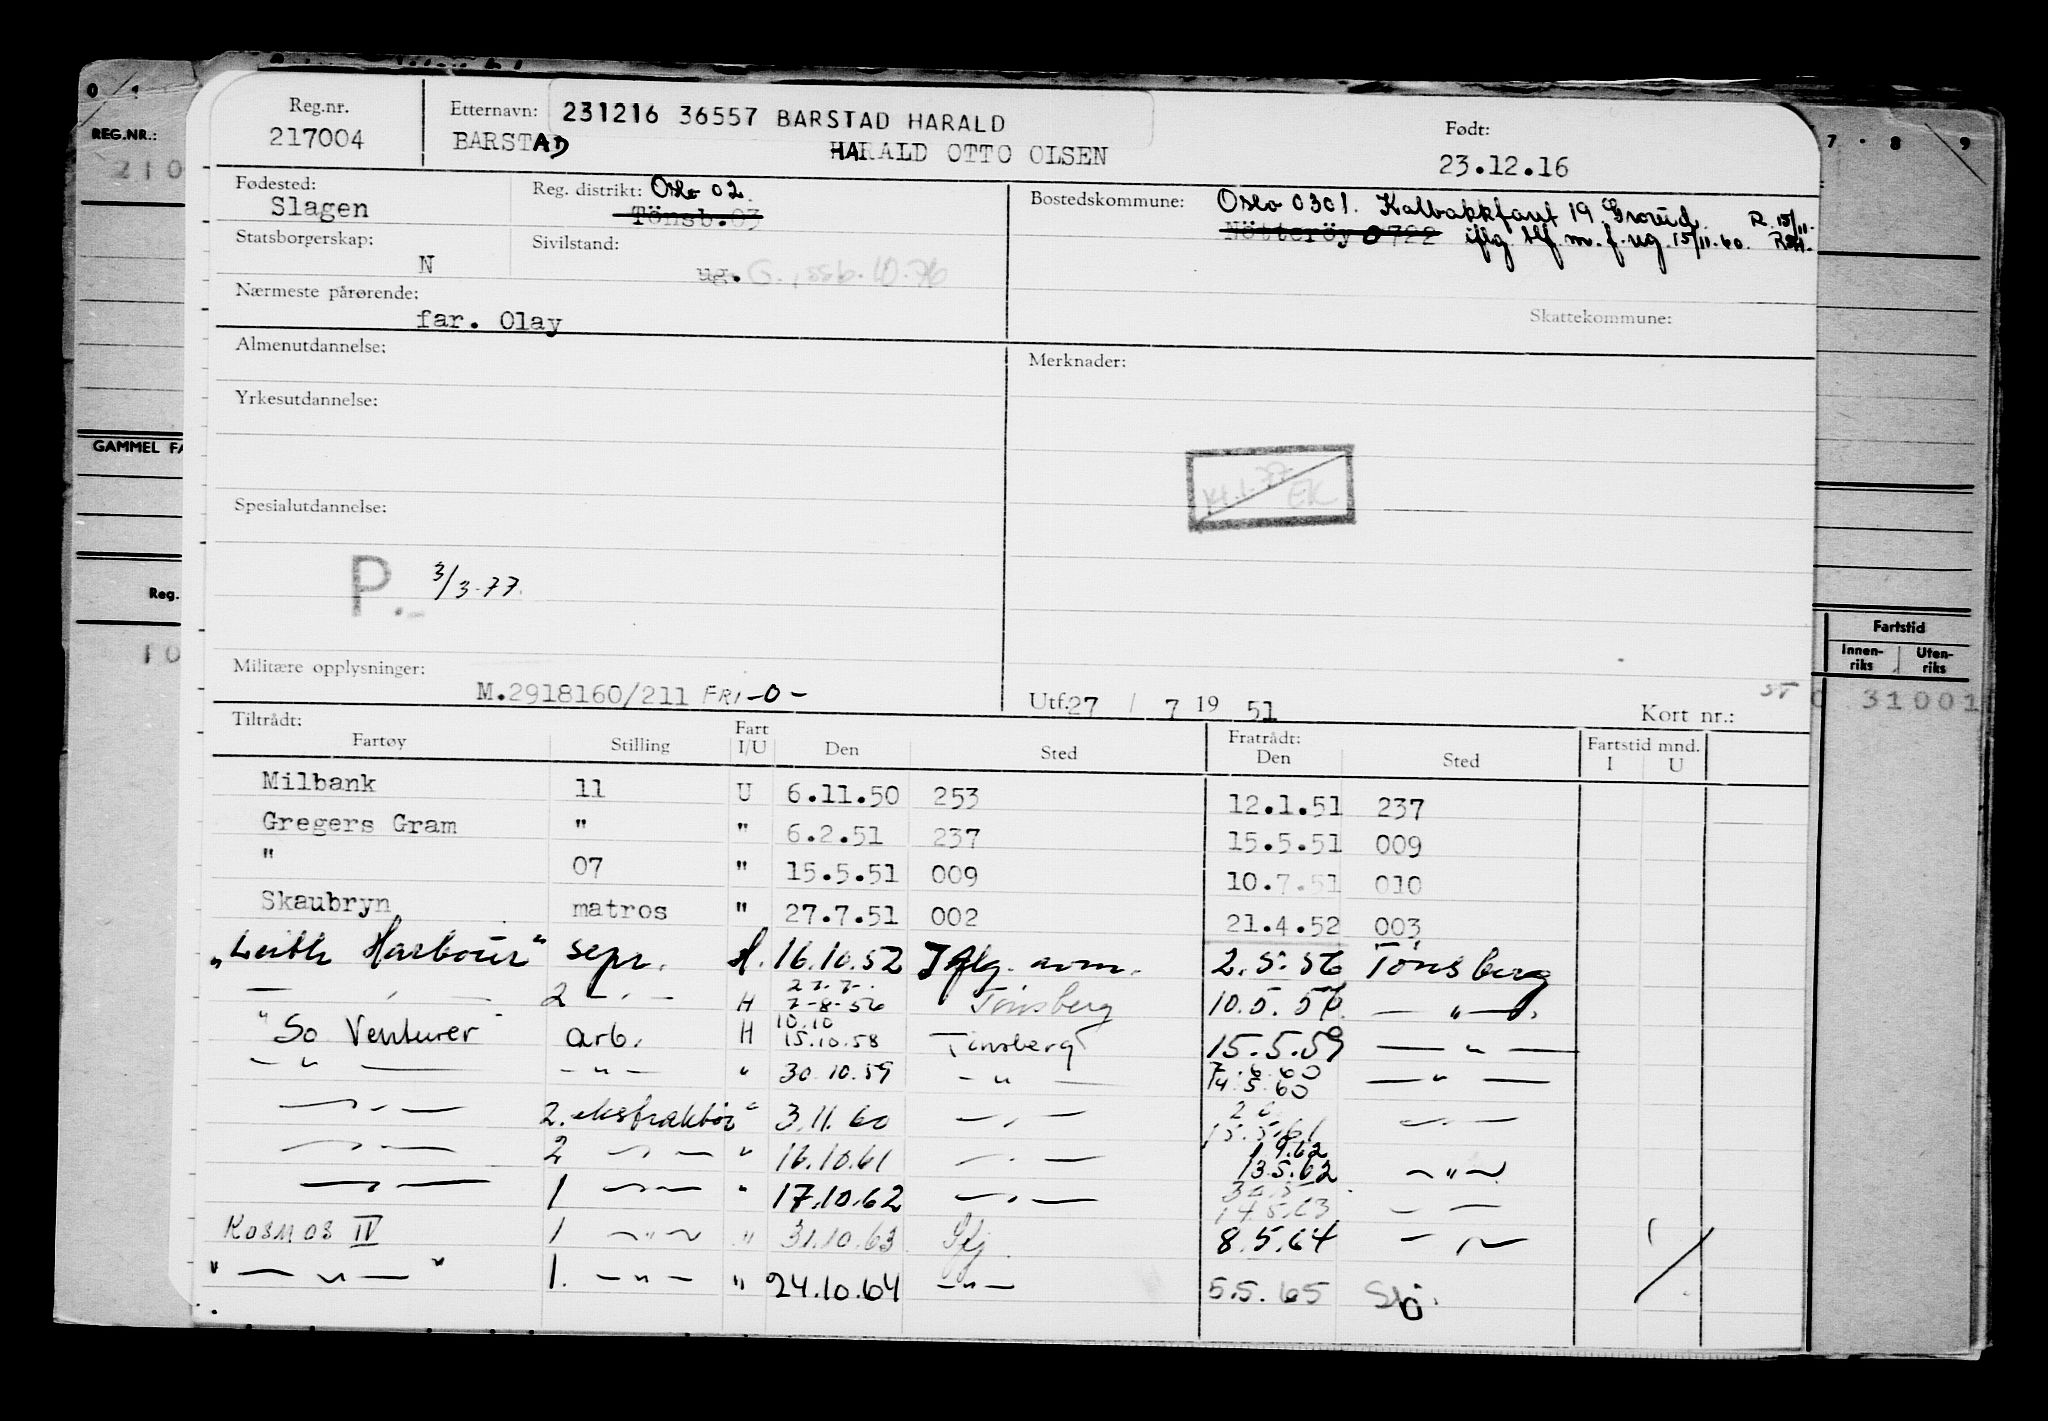 0 .
7 . 8 . 9
REG.NR.:
210
Reg.nr.
217004
Etternavn: 231216 36557 BARSTAD HARALD
BARSTAD HARALD OTTO OLSEN
Født:
23.12.16
Fødested:
Slagen
Reg. distrikt: Oslo 02
Tönsb.03
Bostedskommune: Oslo 0301. Kalbakkfaret 19 Grorud. R. 15/11.
Nötteröy 0722 iflg tlf m. f. ug 15/11.60.
Statsborgerskap:
N
Sivilstand:
ug. G., ssb. 10.76
Nærmeste pårørende:
far. Olay
Skattekommune:
Almenutdannelse:
Merknader:
Yrkesutdannelse:
GAMMEL FA
14.1.77 EK
Spesialutdannelse:
P. 3/3.77.
Reg.
10
Fartstid
Innenriks Utenriks
0 31001
Militære opplysninger:
M.2918160/211 FRI -0-
Utf.27 / 7 19 51
Kort nr.:
Tiltrådt:
Fartøy Stilling Fart I/U Den Sted Fratrådt: Den Sted Fartstid mnd. I U
Milbank 11 U 6.11.50 253 12.1.51 237
Gregers Gram " " 6.2.51 237 15.5.51 009
" 07 " 15.5.51 009 10.7.51 010
Skaubryn matros " 27.7.51 002 21.4.52 003
"Leith Harbour" sepr. H. 16.10.52 Iflg. avm. 2.5.56 Tønsberg
— " — 2 — " — H 7-8-56 Tønsberg 10.5.58. — " —
"So Venturer" arb. H 10.10 15.10.58 Tønsberg 15.5.59 — " —
— " — — " — " 30.10.59 — " — 7.6.60 14.5.60 — " —
— " — 2. ekstraktör " 3.11.60 — " — 15.5.61 — " —
— " — 2 — " — " 16.10.61 — " — 1.9.62 13.5.62 — " —
— " — 1 — " — " 17.10.62 — " — 14.5.63 — " —
KOSMOS IV 1 — " — " 31.10.63 Sfj. 8.5.64 — " —
" — " — " 1. — " — " 24.10.64 — " — 5.5.65 Sfj.